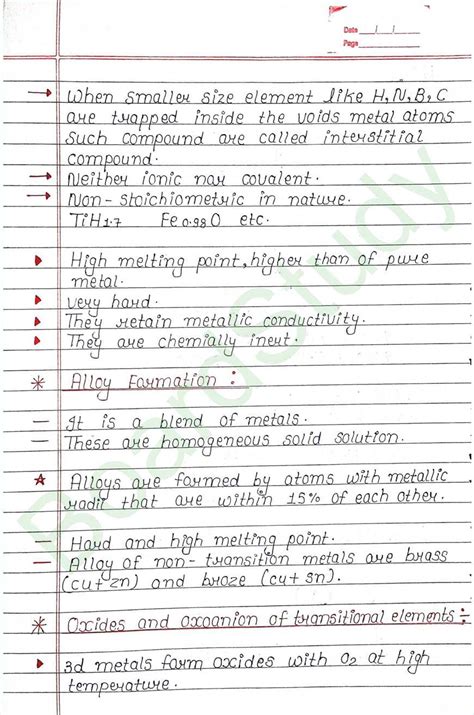 Date __/__/__
Page
→ When smaller size element like H, N, B, C
are trapped inside the voids metal atoms
Such compound are called interstitial
compound.
→ Neither ionic nar covalent.
→ Non-stoichiometric in nature.
TiH1.7 Fe0.98O etc.
High melting point, higher than of pure
metal.
very hard.
They retain metallic conductivity.
They are chemially inert.
* Alloy Formation :
— It is a blend of metals.
— These are homogeneous solid solution.
★ Alloys are formed by atoms with metallic
radii that are within 15% of each other.
— Hard and high melting point.
— Alloy of non-transition metals are brass
(cu+zn) and broze (cu+sn).
* Oxides and oxoanion of transitional elements :-
3d metals form oxides with O2 at high
temperature.
BoardStudy